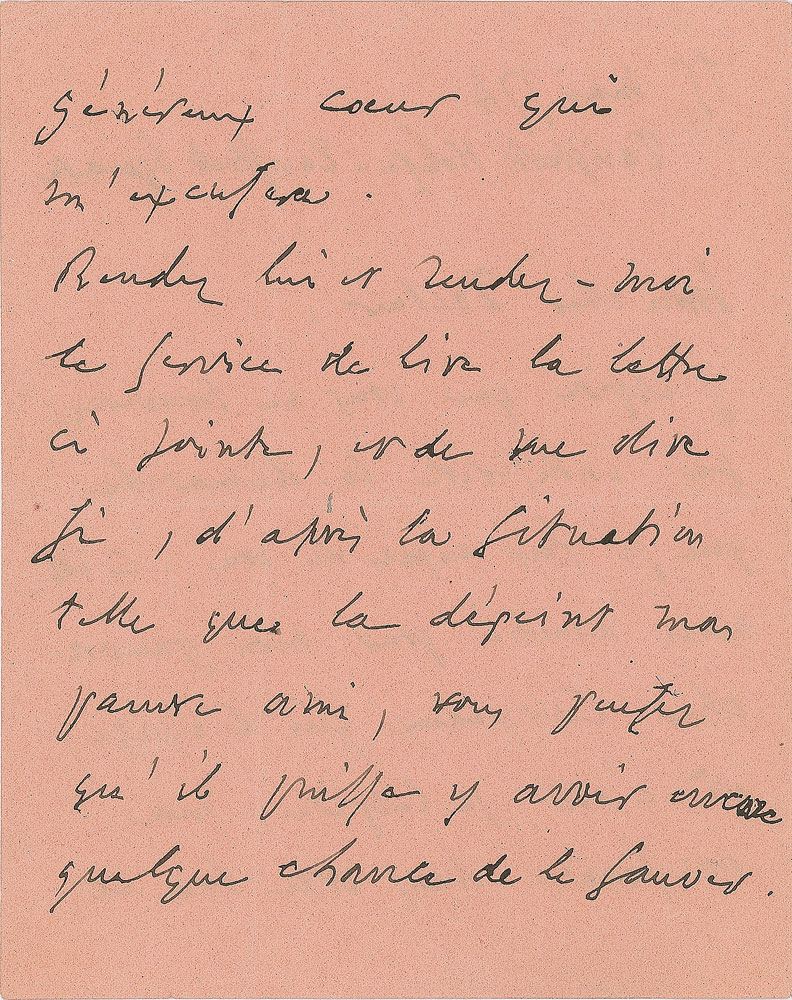 généreux coeur qui
m'excusera.
Rendez lui et rendez-moi
le service de lire la lettre
ci jointe, et de me dire
si, d'après la situation
telle que la dépeint mon
pauvre ami, vous pensez
qu'il puisse y avoir encore
quelque chance de le sauver.